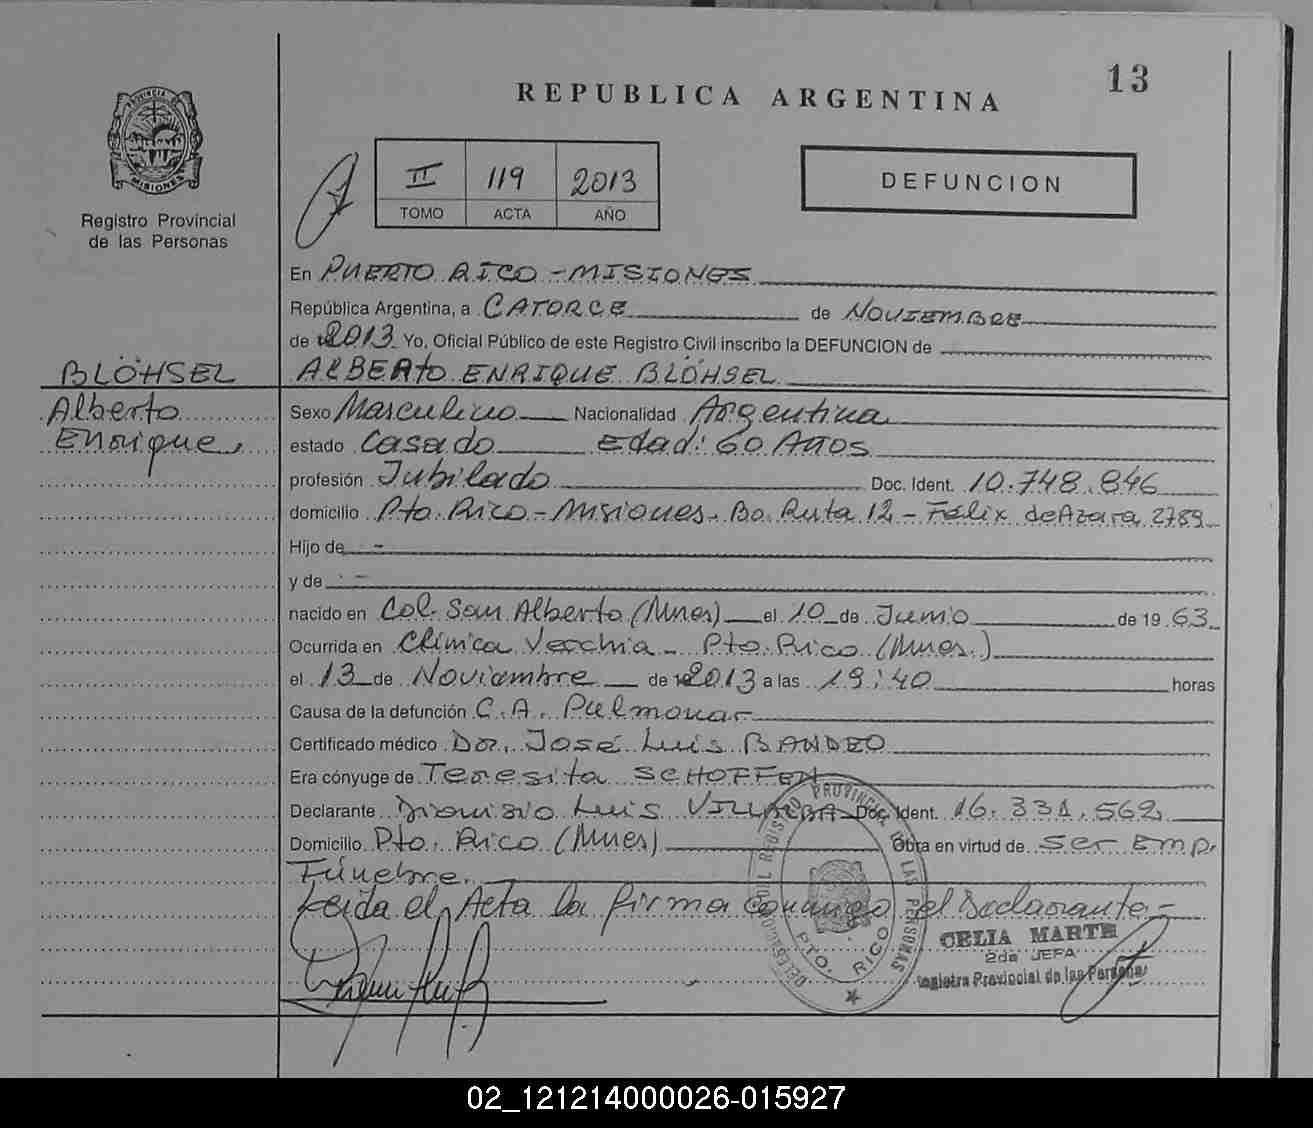 13
REPUBLICA ARGENTINA
PROVINCIA DE
MISIONES
Registro Provincial
de las Personas
II 119 2013
TOMO ACTA AÑO
DEFUNCION
En PUERTO RICO - MISIONES
República Argentina, a CATORCE de NOVIEMBRE
de 2013 Yo, Oficial Público de este Registro Civil inscribo la DEFUNCION de
BLÖHSEL ALBERTO ENRIQUE BLÖHSEL
Alberto Sexo Masculino Nacionalidad Argentina
Enrique estado Casado Edad: 60 Años
profesión Jubilado Doc. Ident. 10.748.846
domicilio Pto. Rico - Misiones. Bo. Ruta 12 - Félix de Azara 2789
Hijo de -
y de -
nacido en Col. San Alberto (Mnes) el 10 de Junio de 1963
Ocurrida en Clínica Vecchia - Pto. Rico (Mnes.)
el 13 de Noviembre de 2013 a las 19:40 horas
Causa de la defunción C.A. Pulmonar
Certificado médico Dr. José Luis BANDEO
Era cónyuge de Teresita SCHOFFEN
Declarante Dionisio Luis VILLALBA Doc. Ident. 16.331.562
Domicilio Pto. Rico (Mnes) Obra en virtud de Ser Emp.
Fúnebre.
Leída el Acta la firma conmigo el Declarante -
DELEGACION DEL REGISTRO PROVINCIAL DE LAS PERSONAS
PTO. RICO
CELIA MARTE
2da JEFA
Registro Provincial de las Personas
02_121214000026-015927